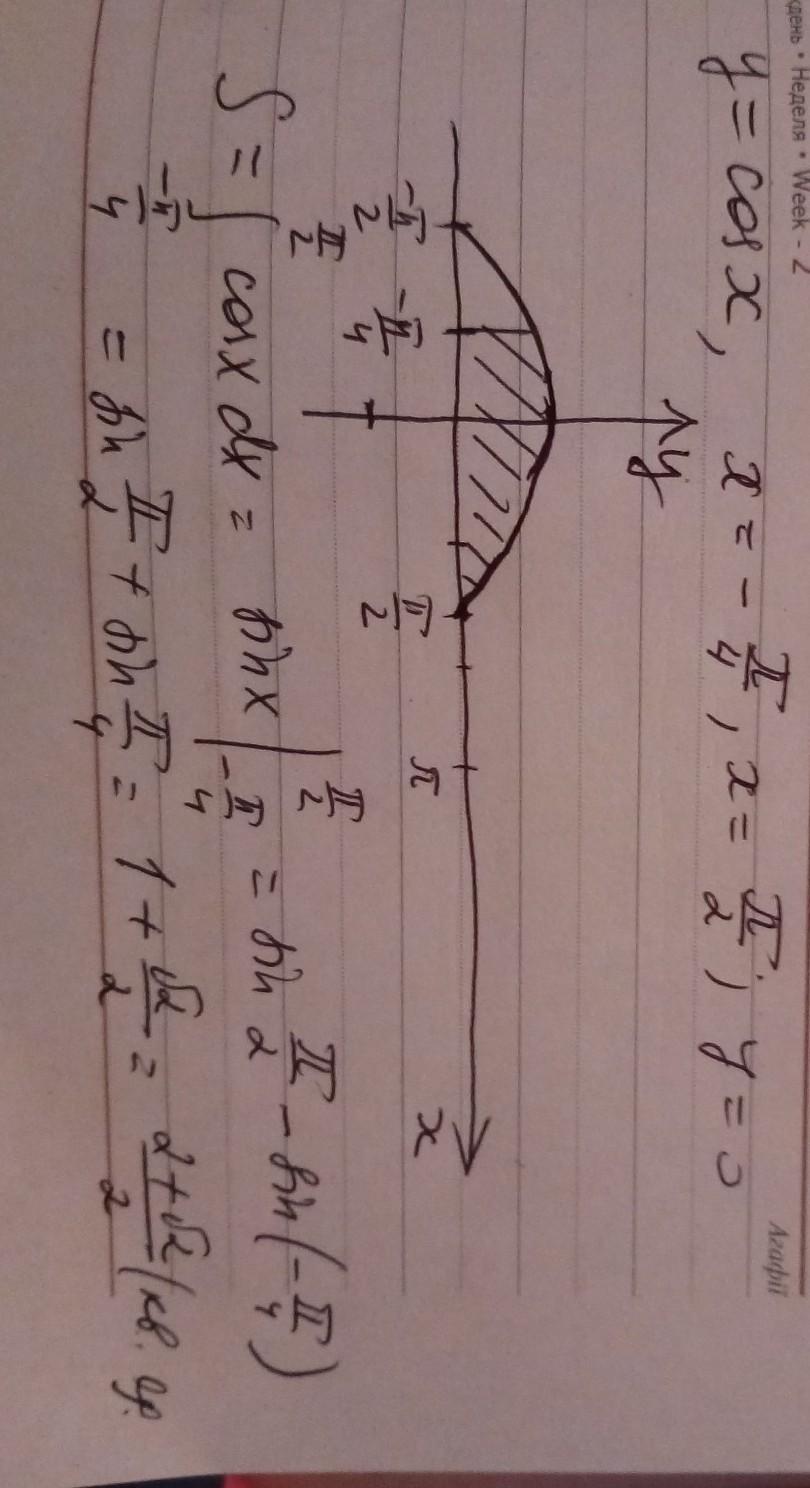 день • Неделя • Week - 2
Агафії
y = cos x, x = - π/4, x = π/2, y = 0
y
-π/2 -π/4 π/2 π x
S = ∫_{-π/4}^{π/2} cos x dx = sin x |_{-π/4}^{π/2} = sin π/2 - sin (- π/4)
= sin π/2 + sin π/4 = 1 + √2/2 = (2+√2)/2 (кв. ор.